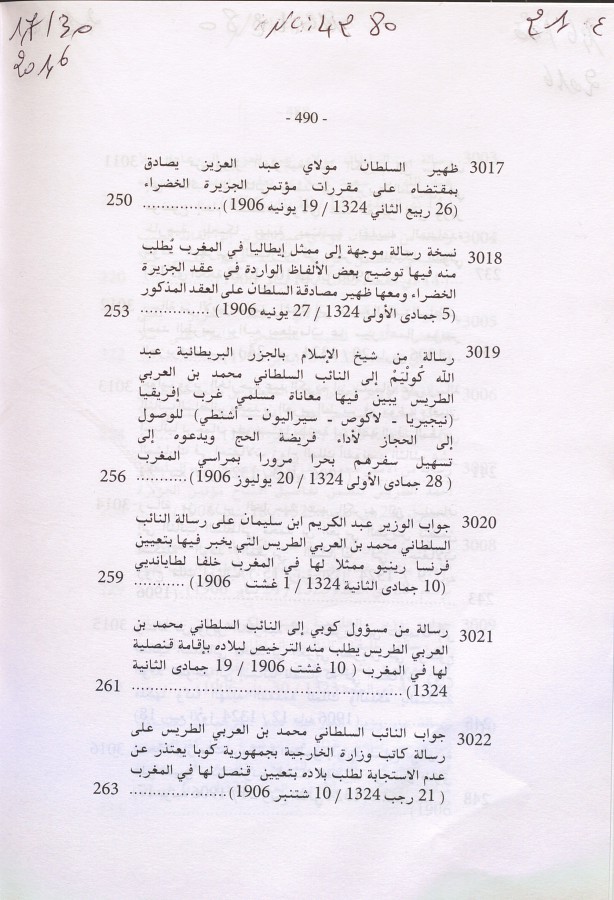 17/30
2016
- 490 -
3017 ظهير السلطان مولاي عبد العزيز يصادق
بمقتضاه على مقررات مؤتمر الجزيرة الخضراء
(26 ربيع الثاني 1324 / 19 يونيه 1906)................ 250
3018 نسخة رسالة موجهة إلى ممثل إيطاليا في المغرب يُطلب
منه فيها توضيح بعض الألفاظ الواردة في عقد الجزيرة
الخضراء ومعها ظهير مصادقة السلطان على العقد المذكور
(5 جمادى الأولى 1324 / 27 يونيه 1906) .............. 253
3019 رسالة من شيخ الإسلام بالجزر البريطانية عبد
الله كُولْيَمْ إلى النائب السلطاني محمد بن العربي
الطريس يبين فيها معاناة مسلمي غرب إفريقيا
(نيجيريا - لاكوص - سيراليون - أشنطي) للوصول
إلى الحجاز لأداء فريضة الحج ويدعوه إلى
تسهيل سفرهم بحرا مرورا بمراسي المغرب
( 28 جمادى الأولى 1324 / 20 يوليوز 1906) ........... 256
3020 جواب الوزير عبد الكريم ابن سليمان على رسالة النائب
السلطاني محمد بن العربي الطريس التي يخبر فيها بتعيين
فرنسا رينيو ممثلا لها في المغرب خلفا لطايانديي
(10 جمادى الثانية 1324 / 1 غشت 1906) .............. 259
3021 رسالة من مسؤول كوبي إلى النائب السلطاني محمد بن
العربي الطريس يطلب منه الترخيص لبلاده بإقامة قنصلية
لها في المغرب ( 10 غشت 1906 / 19 جمادى الثانية
1324) ........................................ 261
3022 جواب النائب السلطاني محمد بن العربي الطريس على
رسالة كاتب وزارة الخارجية بجمهورية كوبا يعتذر عن
عدم الاستجابة لطلب بلاده بتعيين قنصل لها في المغرب
( 21 رجب 1324 / 10 شتنبر 1906) .............. 263